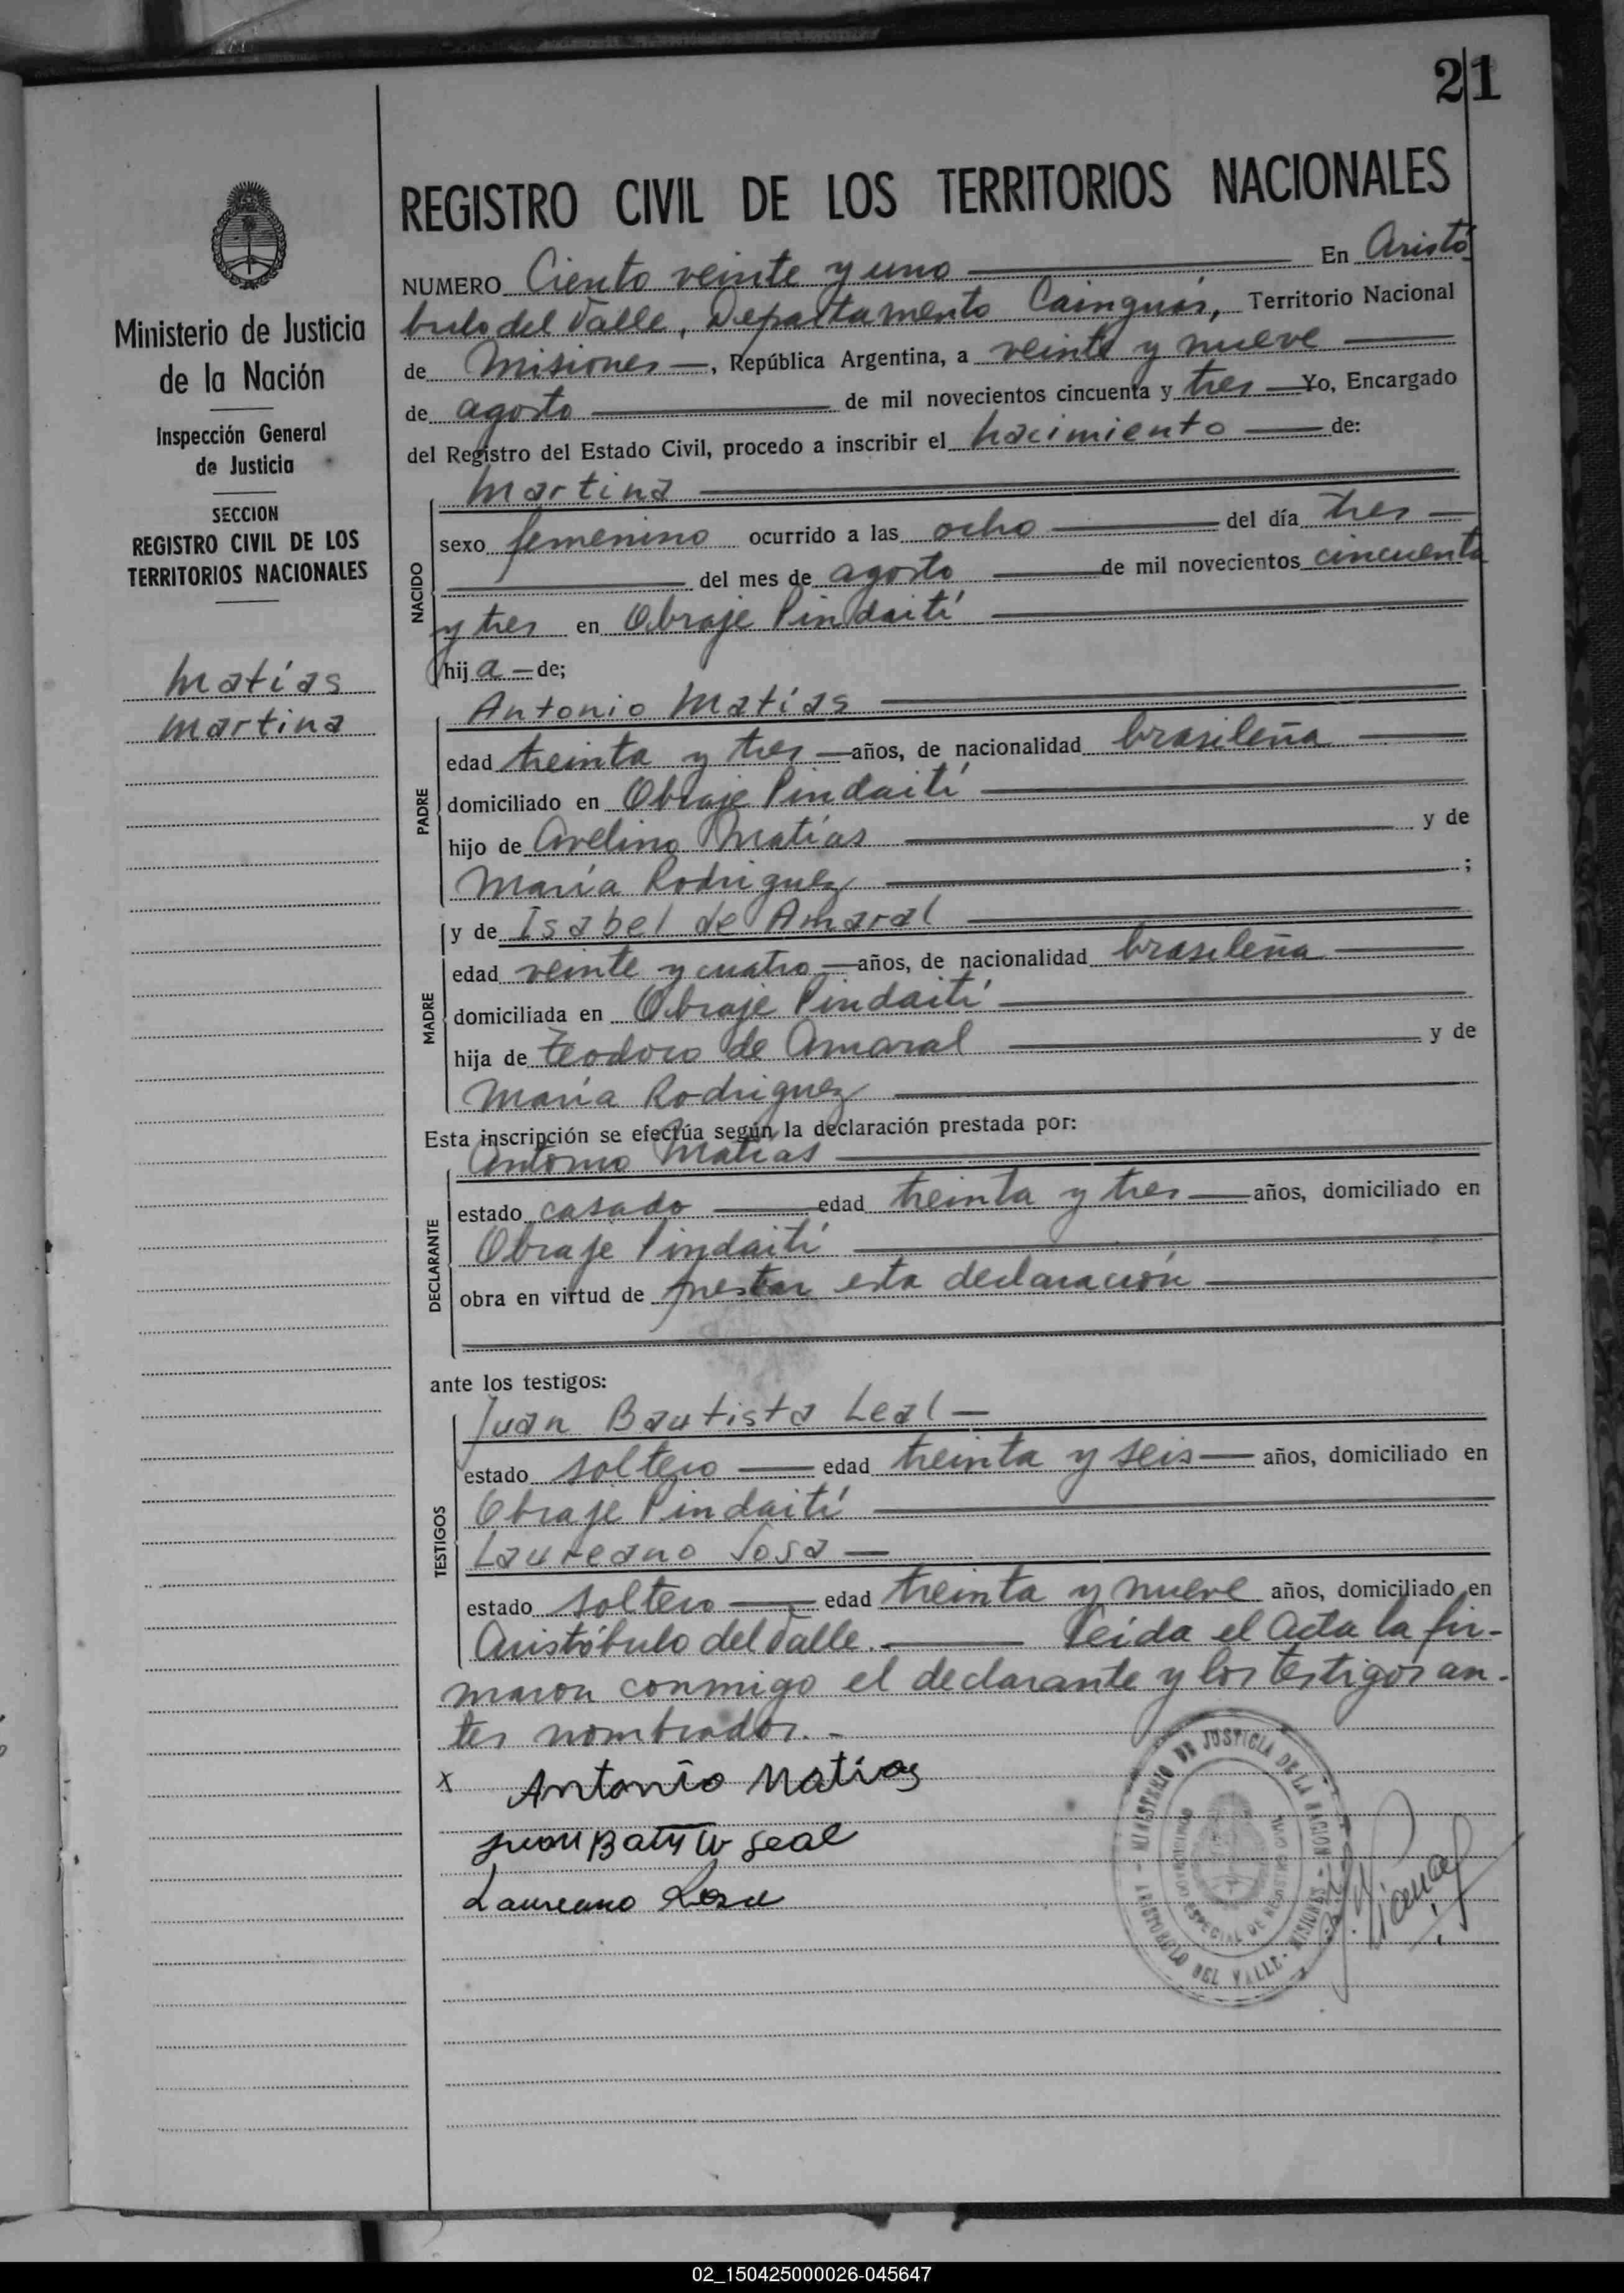 21
REGISTRO CIVIL DE LOS TERRITORIOS NACIONALES
Ministerio de Justicia
de la Nación
Inspección General
de Justicia
SECCION
REGISTRO CIVIL DE LOS
TERRITORIOS NACIONALES
Matías
Martina
NUMERO Ciento veinte y uno En Aristó
bulo del Valle, Departamento Cainguás, Territorio Nacional
de Misiones, República Argentina, a veinte y nueve
de agosto de mil novecientos cincuenta y tres Yo, Encargado
del Registro del Estado Civil, procedo a inscribir el nacimiento de:
NACIDO
Martina
sexo femenino ocurrido a las ocho del día tres
del mes de agosto de mil novecientos cincuenta
y tres en Obraje Pindaití
hija de;
PADRE
Antonio Matías
edad treinta y tres años, de nacionalidad brasileña
domiciliado en Obraje Pindaití
hijo de Avelino Matías y de
María Rodriguez ;
y de Isabel de Amaral
MADRE
edad veinte y cuatro años, de nacionalidad brasileña
domiciliada en Obraje Pindaití
hija de Teodoro de Amaral y de
María Rodriguez
Esta inscripción se efectúa según la declaración prestada por:
DECLARANTE
Antonio Matías
estado casado edad treinta y tres años, domiciliado en
Obraje Pindaití
obra en virtud de prestar esta declaración
ante los testigos:
TESTIGOS
Juan Bautista Leal
estado soltero edad treinta y seis años, domiciliado en
Obraje Pindaití
Laureano Sosa
estado soltero edad treinta y nueve años, domiciliado en
Aristóbulo del Valle. Leída el Acta la fir-
maron conmigo el declarante y los testigos an-
tes nombrados.-
x Antonio Matias
Juan Leal
Laureano
MINISTERIO DE JUSTICIA DE LA NACION
ARISTOBULO DEL VALLE - MISIONES
02_150425000026-045647